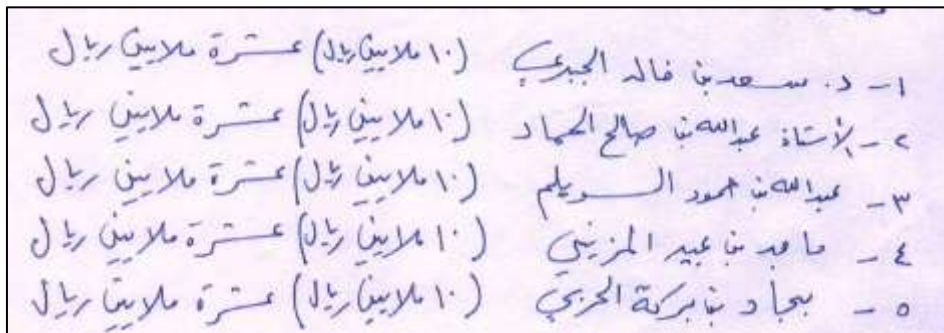 ١- د. سعد بن خالد الجبري (١٠ ملايين ريال) عشرة ملايين ريال
٢- الأستاذ عبدالله بن صالح الحماد (١٠ ملايين ريال) عشرة ملايين ريال
٣- عبدالله بن حمود السويلم (١٠ ملايين ريال) عشرة ملايين ريال
٤- ماجد بن عبيد المزيني (١٠ ملايين ريال) عشرة ملايين ريال
٥- بجاد بن بركة الحربي (١٠ ملايين ريال) عشرة ملايين ريال